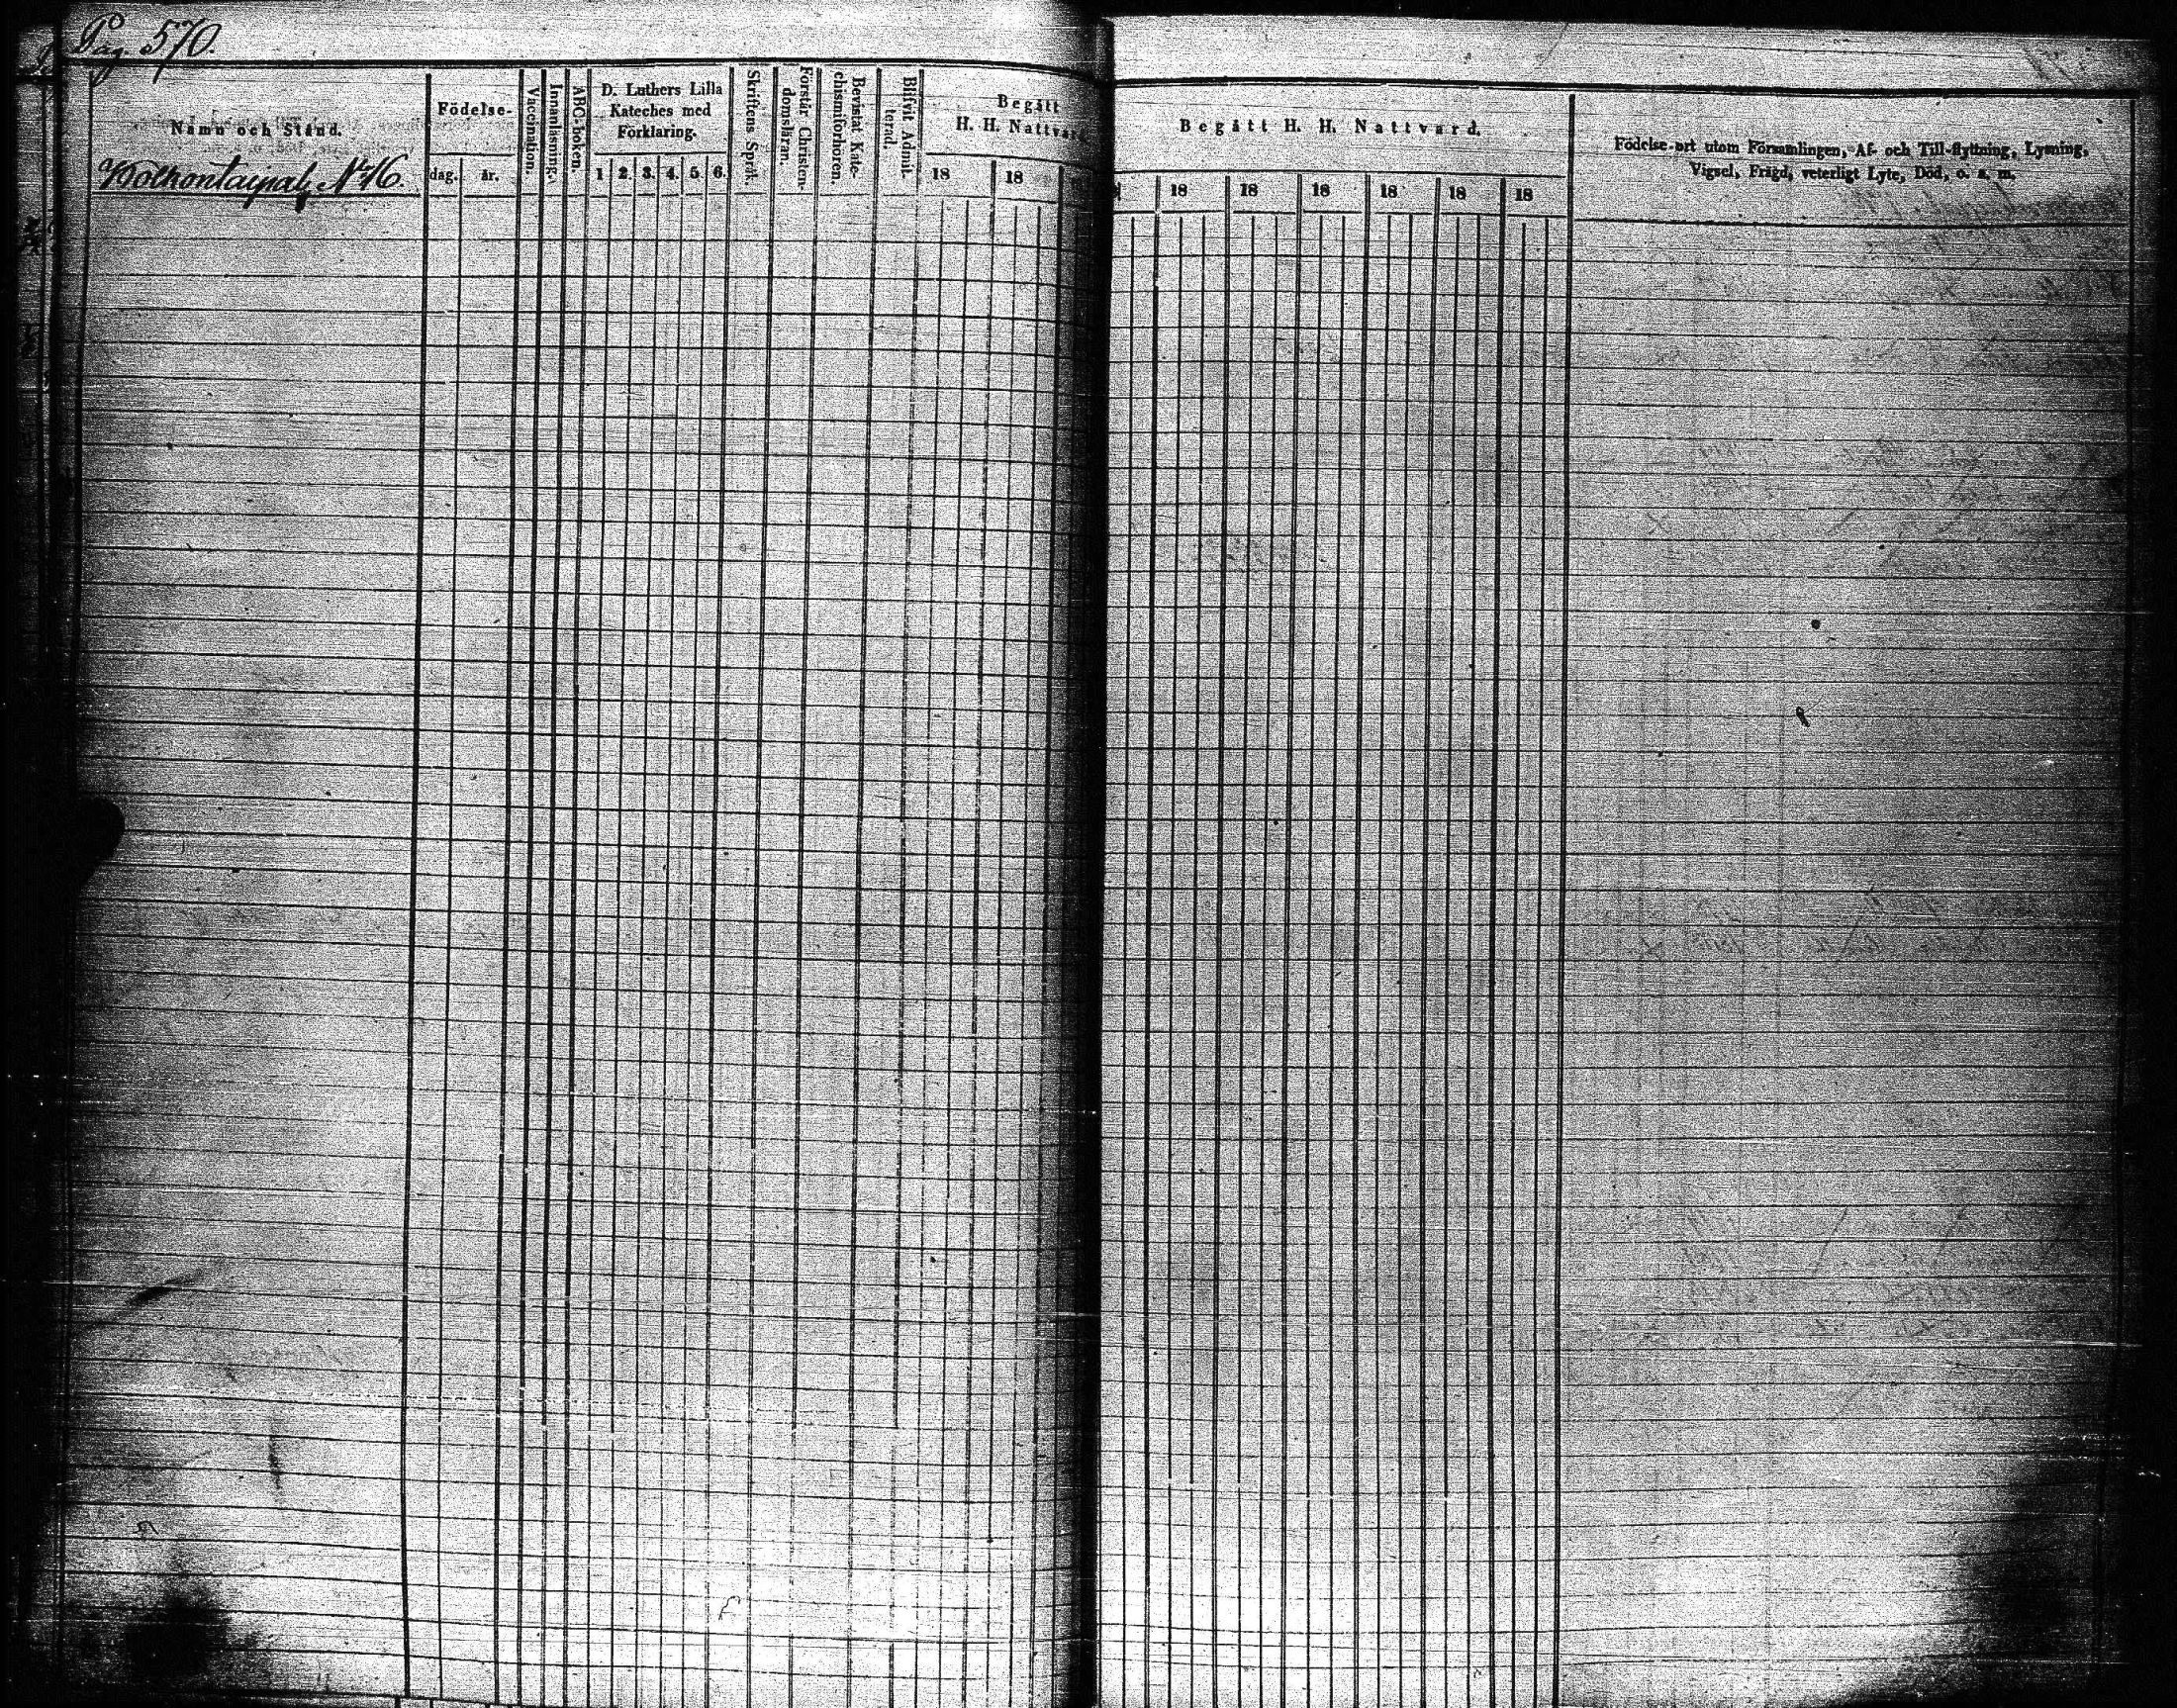 Pag. 570.
Namn och Stånd.
Wolkontaipal, N:o 16.
Födelse-
dag.
år.
Vaccination.
Innanläsning.
ABC-boken.
D. Luthers Lilla
Kateches med
Förklaring.
1 2. 3. 4. 5. 6.
Skriftens Språk.
Förstår Christen-
domsläran.
Bevistat Kate-
chismiförhören.
Blifvit Admit-
terad.
Begått
H. H. Nattvard
18 18
Begått H. H. Nattvard.
18 18 18 18 18 18
Födelse-ort utom Församlingen, Af- och Till-flyttning, Lysning,
Vigsel, Frägd, veterligt Lyte, Död, o. s. m.